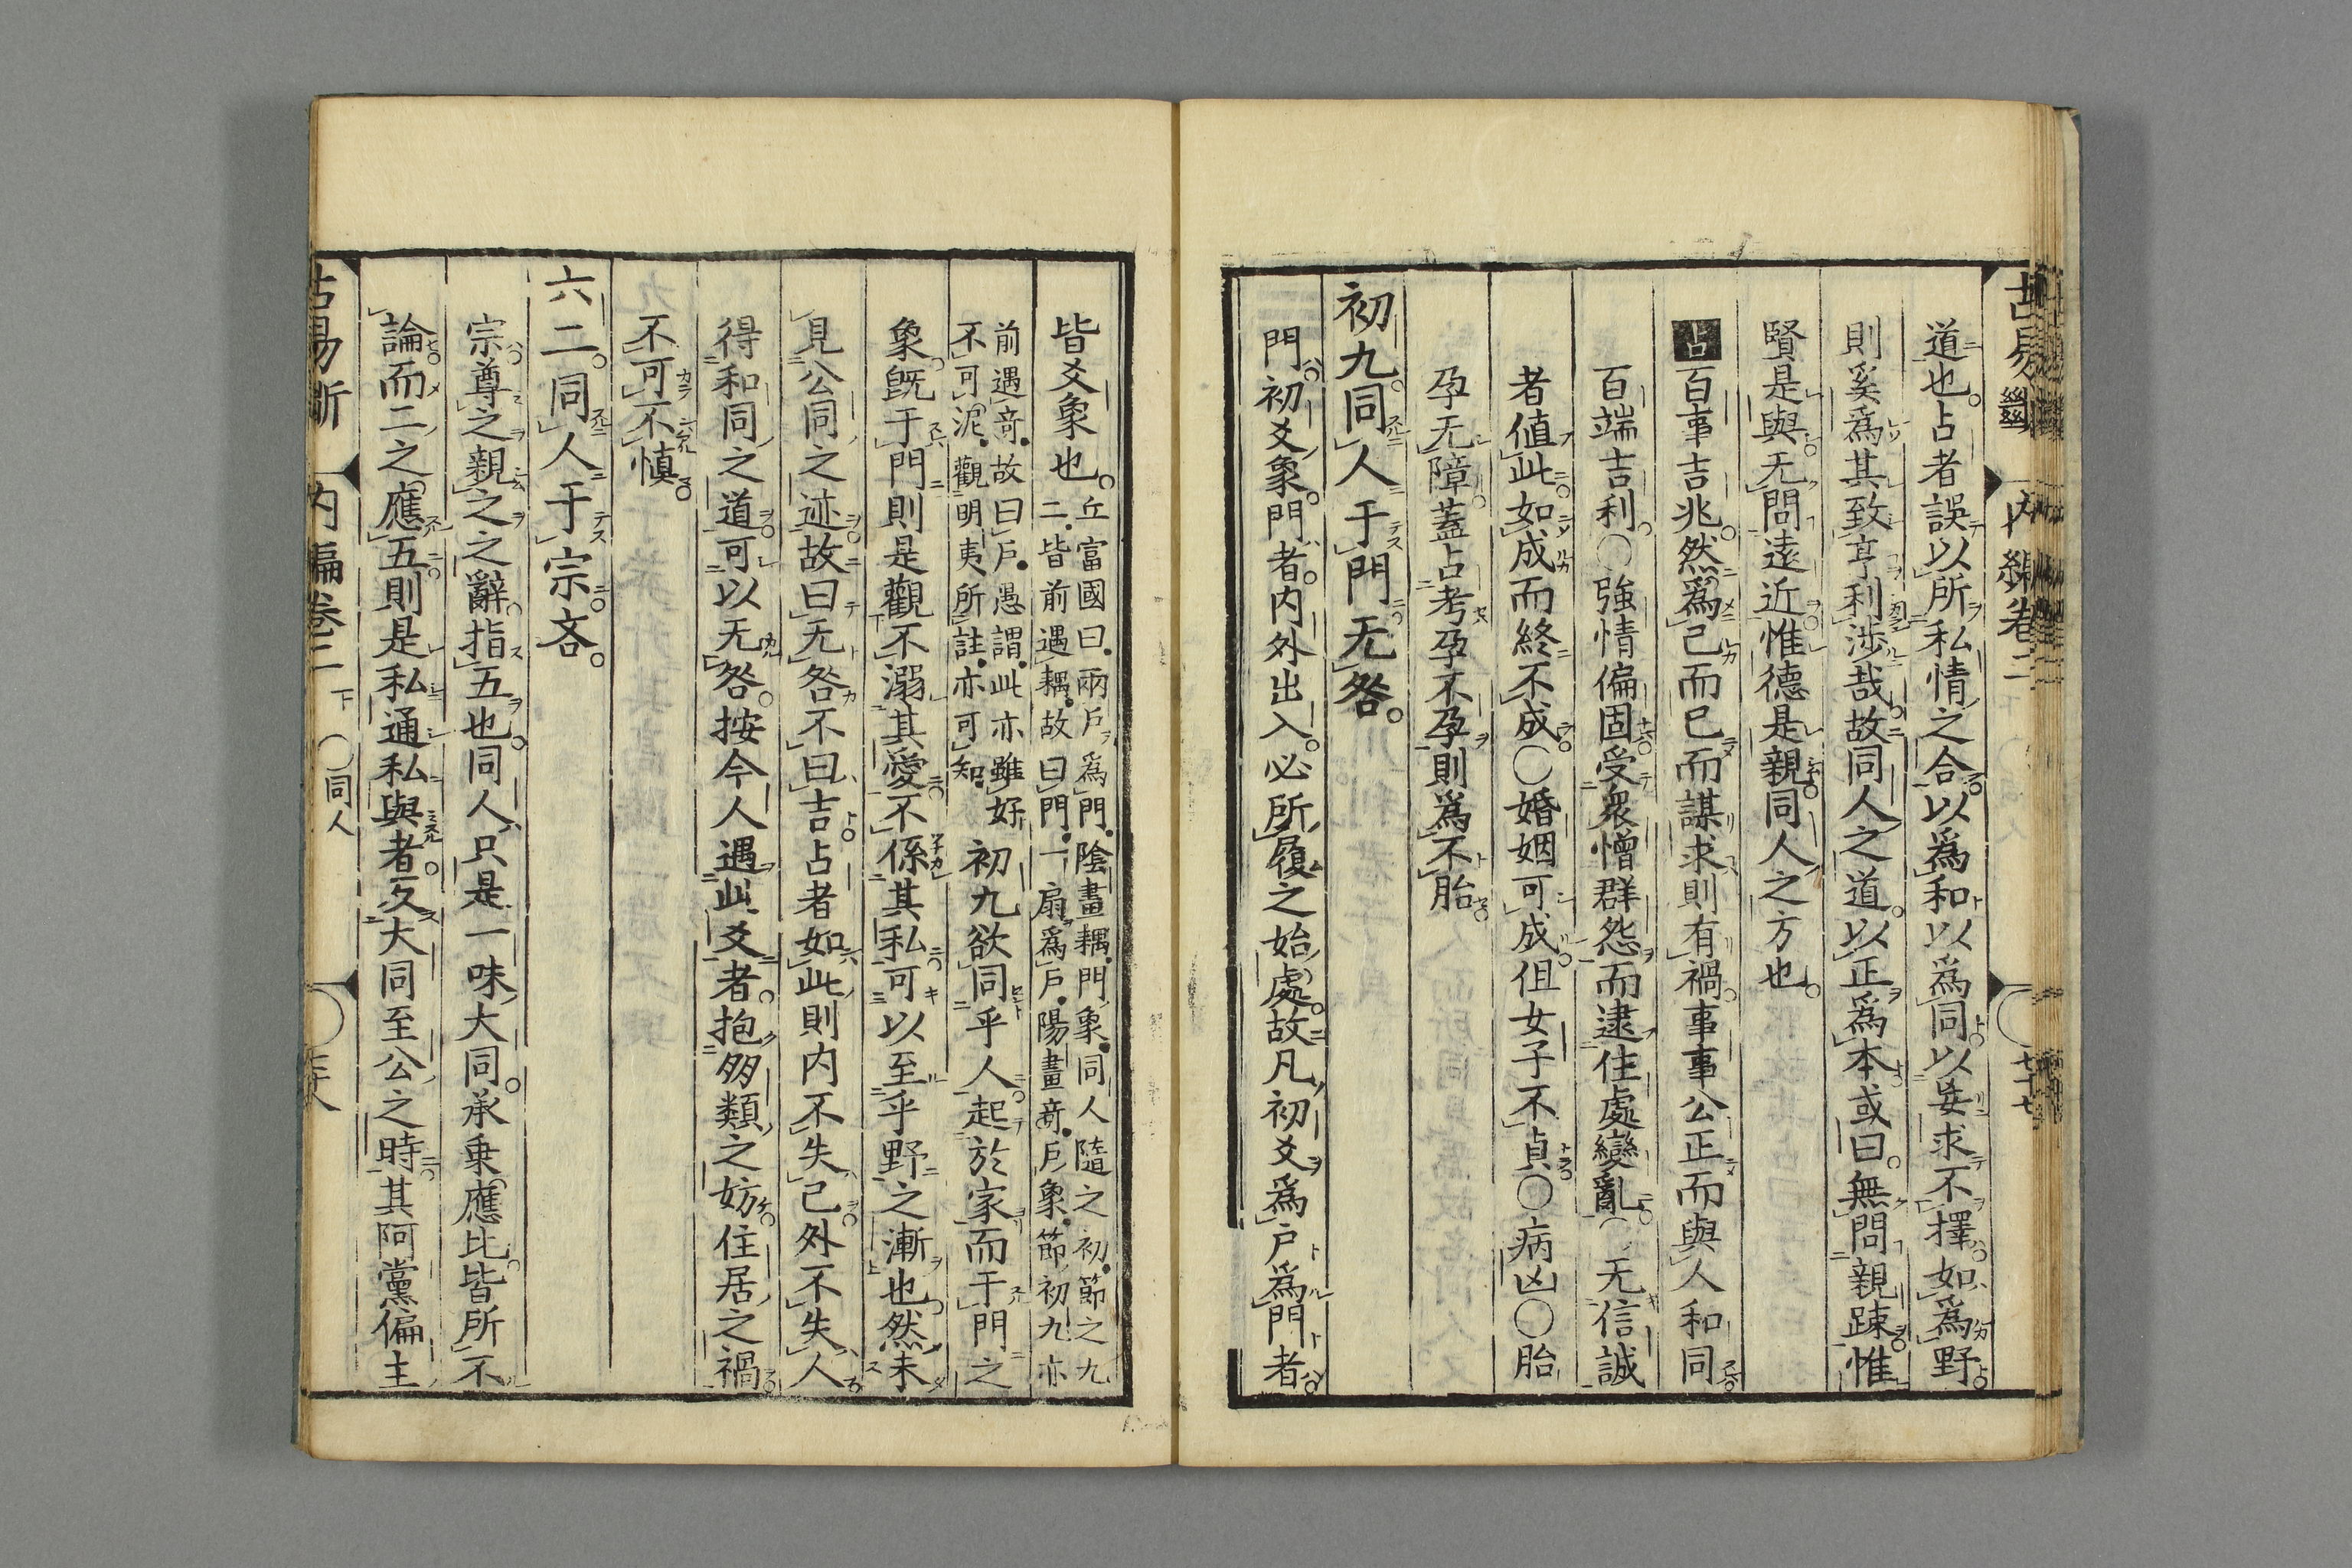 古易斷 內編卷二 七十七
道也占者誤以所私情之合以爲和以爲同以妄求不擇如爲野
則奚爲其致亨利涉哉故同人之道以正爲本或曰無問親踈惟
賢是與无問遠近惟德是親同人之方也
占百事吉兆然爲己而已而謀求則有禍事事公正而與人和同
百端吉利〇強情偏固受衆憎群怨而逮住處變亂〇无信誠
者値此如成而終不成〇婚姻可成但女子不貞〇病凶〇胎
孕无障蓋占考孕不孕則爲不胎
初九同人于門无咎
門初爻象門者內外出入必所履之始處故凡初爻爲戶爲門者
皆爻象也丘富國曰兩戶爲門陰畫耦門象同人隨之初節之九
二皆前遇耦故曰門一扇爲戶陽畫竒戶象節初九亦
前遇竒故曰戶愚謂此亦雖好
不可泥觀明夷所註亦可知初九欲同乎人起於家而于門之
象旣于門則是觀不溺其愛不係其私可以至乎野之漸也然未
見公同之迹故曰无咎不曰吉占者如此則內不失己外不失人
得和同之道可以无咎按今人遇此爻者抱朋類之妨住居之禍
不可不愼
六二同人于宗吝
宗尊之親之之辭指五也同人只是一味大同承乗應比皆所不
論而二之應五則是私通私與者反大同至公之時其阿黨偏主
古易斷 內編卷二 下 〇同人